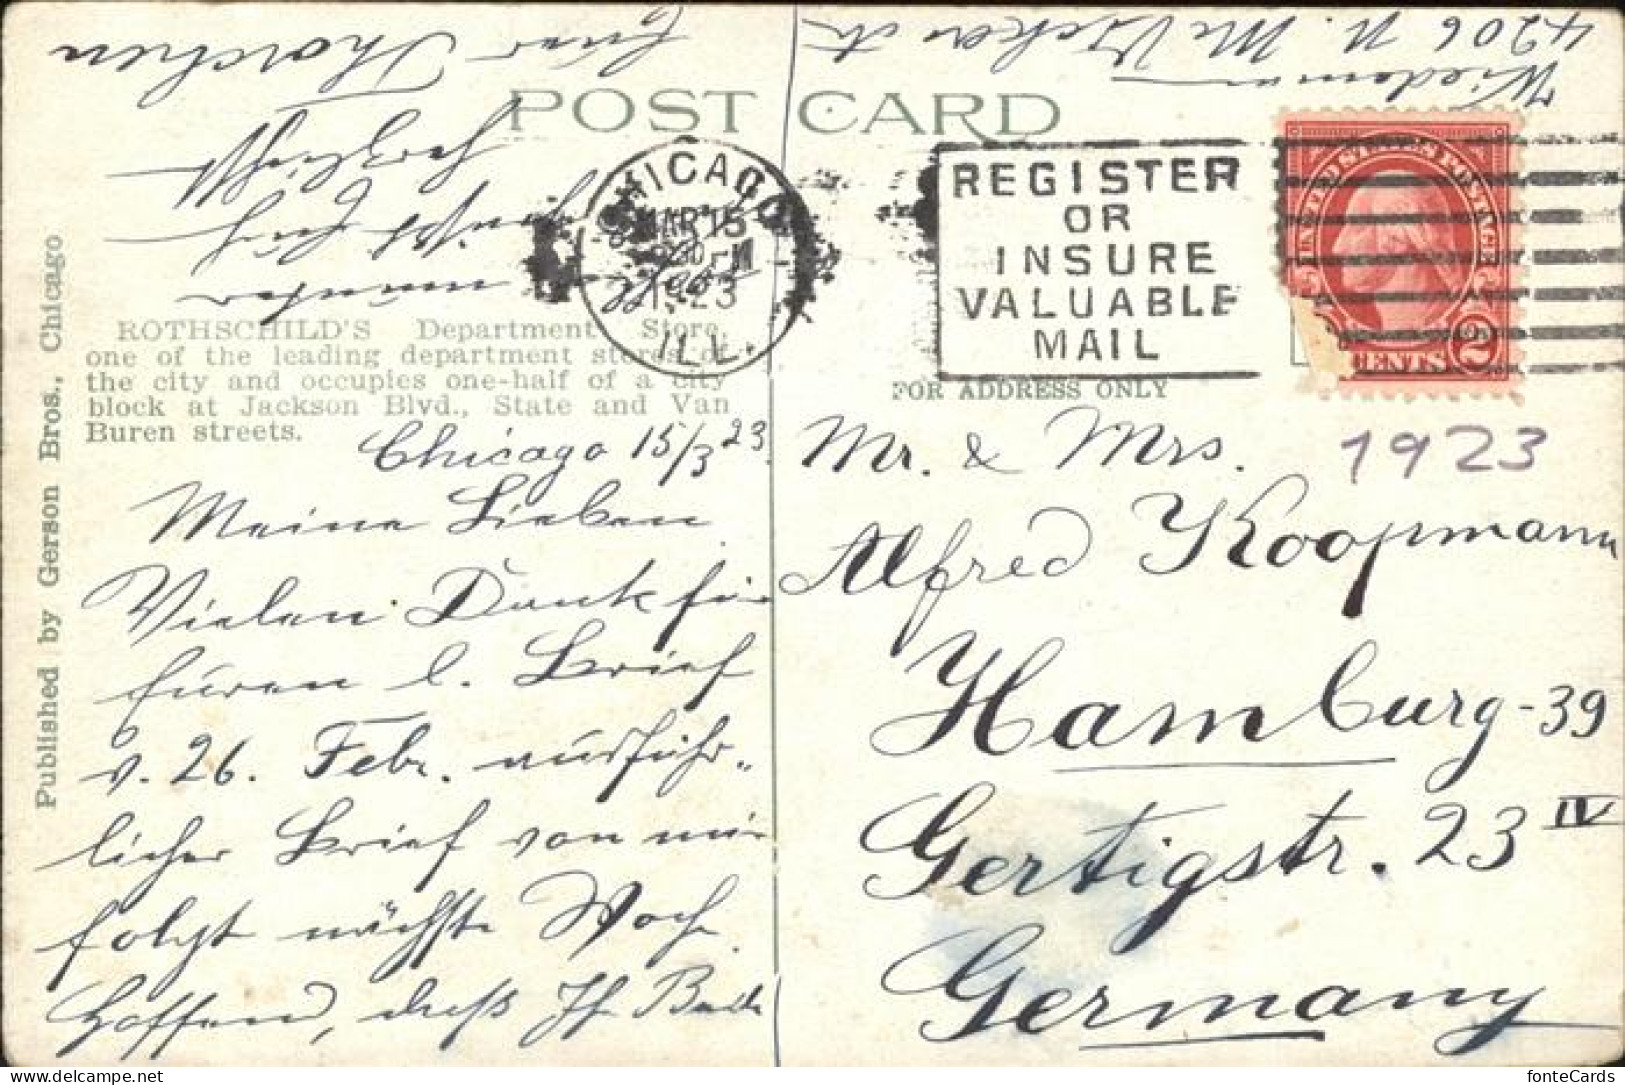 POST CARD
CHICAGO
MAR 15
1923
ILL.
REGISTER
OR
INSURE
VALUABLE
MAIL
UNITED STATES POSTAGE
2 CENTS 2
FOR ADDRESS ONLY
Published by Gerson Bros., Chicago
ROTHSCHILD'S Department Store,
one of the leading department stores of
the city and occupies one-half of a city
block at Jackson Blvd., State and Van
Buren streets.
Chicago 15/3 23.
Meine Lieben
Vielen Dank für
Euren l. Brief
v. 26. Febr. ausführ-
licher Brief von mir
folgt nächste Woche
Hoffend, daß Ihr Beide
munter
grüßt Euch
herzlichst
Euer
Wiedeman
4206 N.
Mr. & Mrs.
1923
Alfred Koopmann
Hamburg-39
Gertigstr. 23 IV
Germany
fonteCards